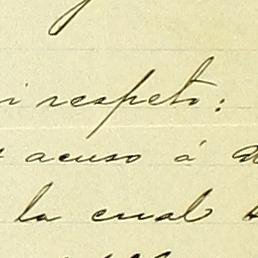 i respeto:
acuso á
la cual